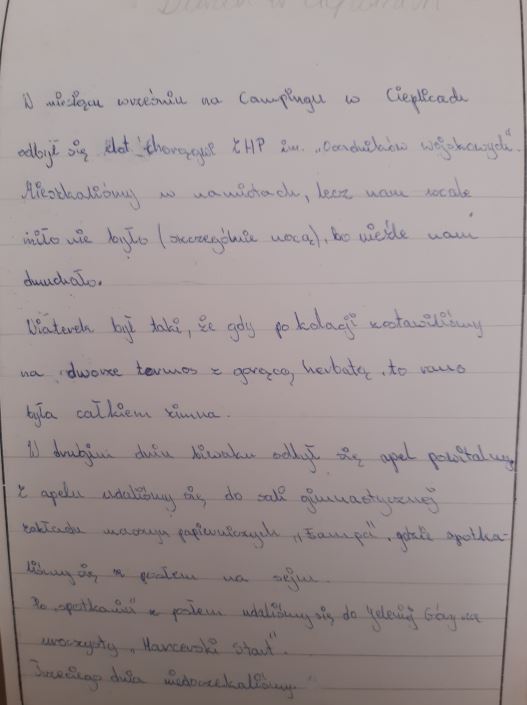 W miesiącu wrześniu na Campingu w Cieplicach
odbył się zlot Chorągwi ZHP im. "Osadników wojskowych".
Mieszkaliśmy w namiotach, lecz nam wcale
miło nie było (szczególnie nocą), bo nieźle nam
dmuchało.
Wiaterek był taki, że gdy po kolacji zostawiliśmy
na dworze termos z gorącą herbatą, to rano
była całkiem zimna.
W drugim dniu biwaku odbył się apel powitalny
z apelu udaliśmy się do sali gimnastycznej
zakładu maszyn papierniczych "Fampa", gdzie spotka-
liśmy się z posłem na sejm.
Po spotkaniu z posłem udaliśmy się do Jeleniej Góry na
uroczysty "Harcerski Start".
Trzeciego dnia